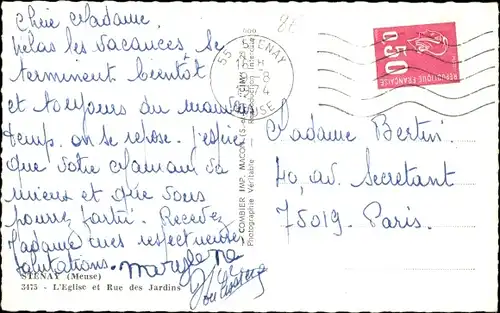 Chère Madame,
helas les vacances se
terminent bientôt
et toujours du mauvais
temps. on se repose. j'espère
que votre Maman va
mieux et que vous
pourrez partir. Recevez
Madame mes respectueuses
salutations. Marylène
STENAY (Meuse)
3475 - L'Eglise et Rue des Jardins
COMBIER IMP. MACON
Photographie Véritable
55 STENAY
MEUSE
0.50
REPUBLIQUE FRANÇAISE
Madame Bertin
40, av. Secretant
75019. Paris.